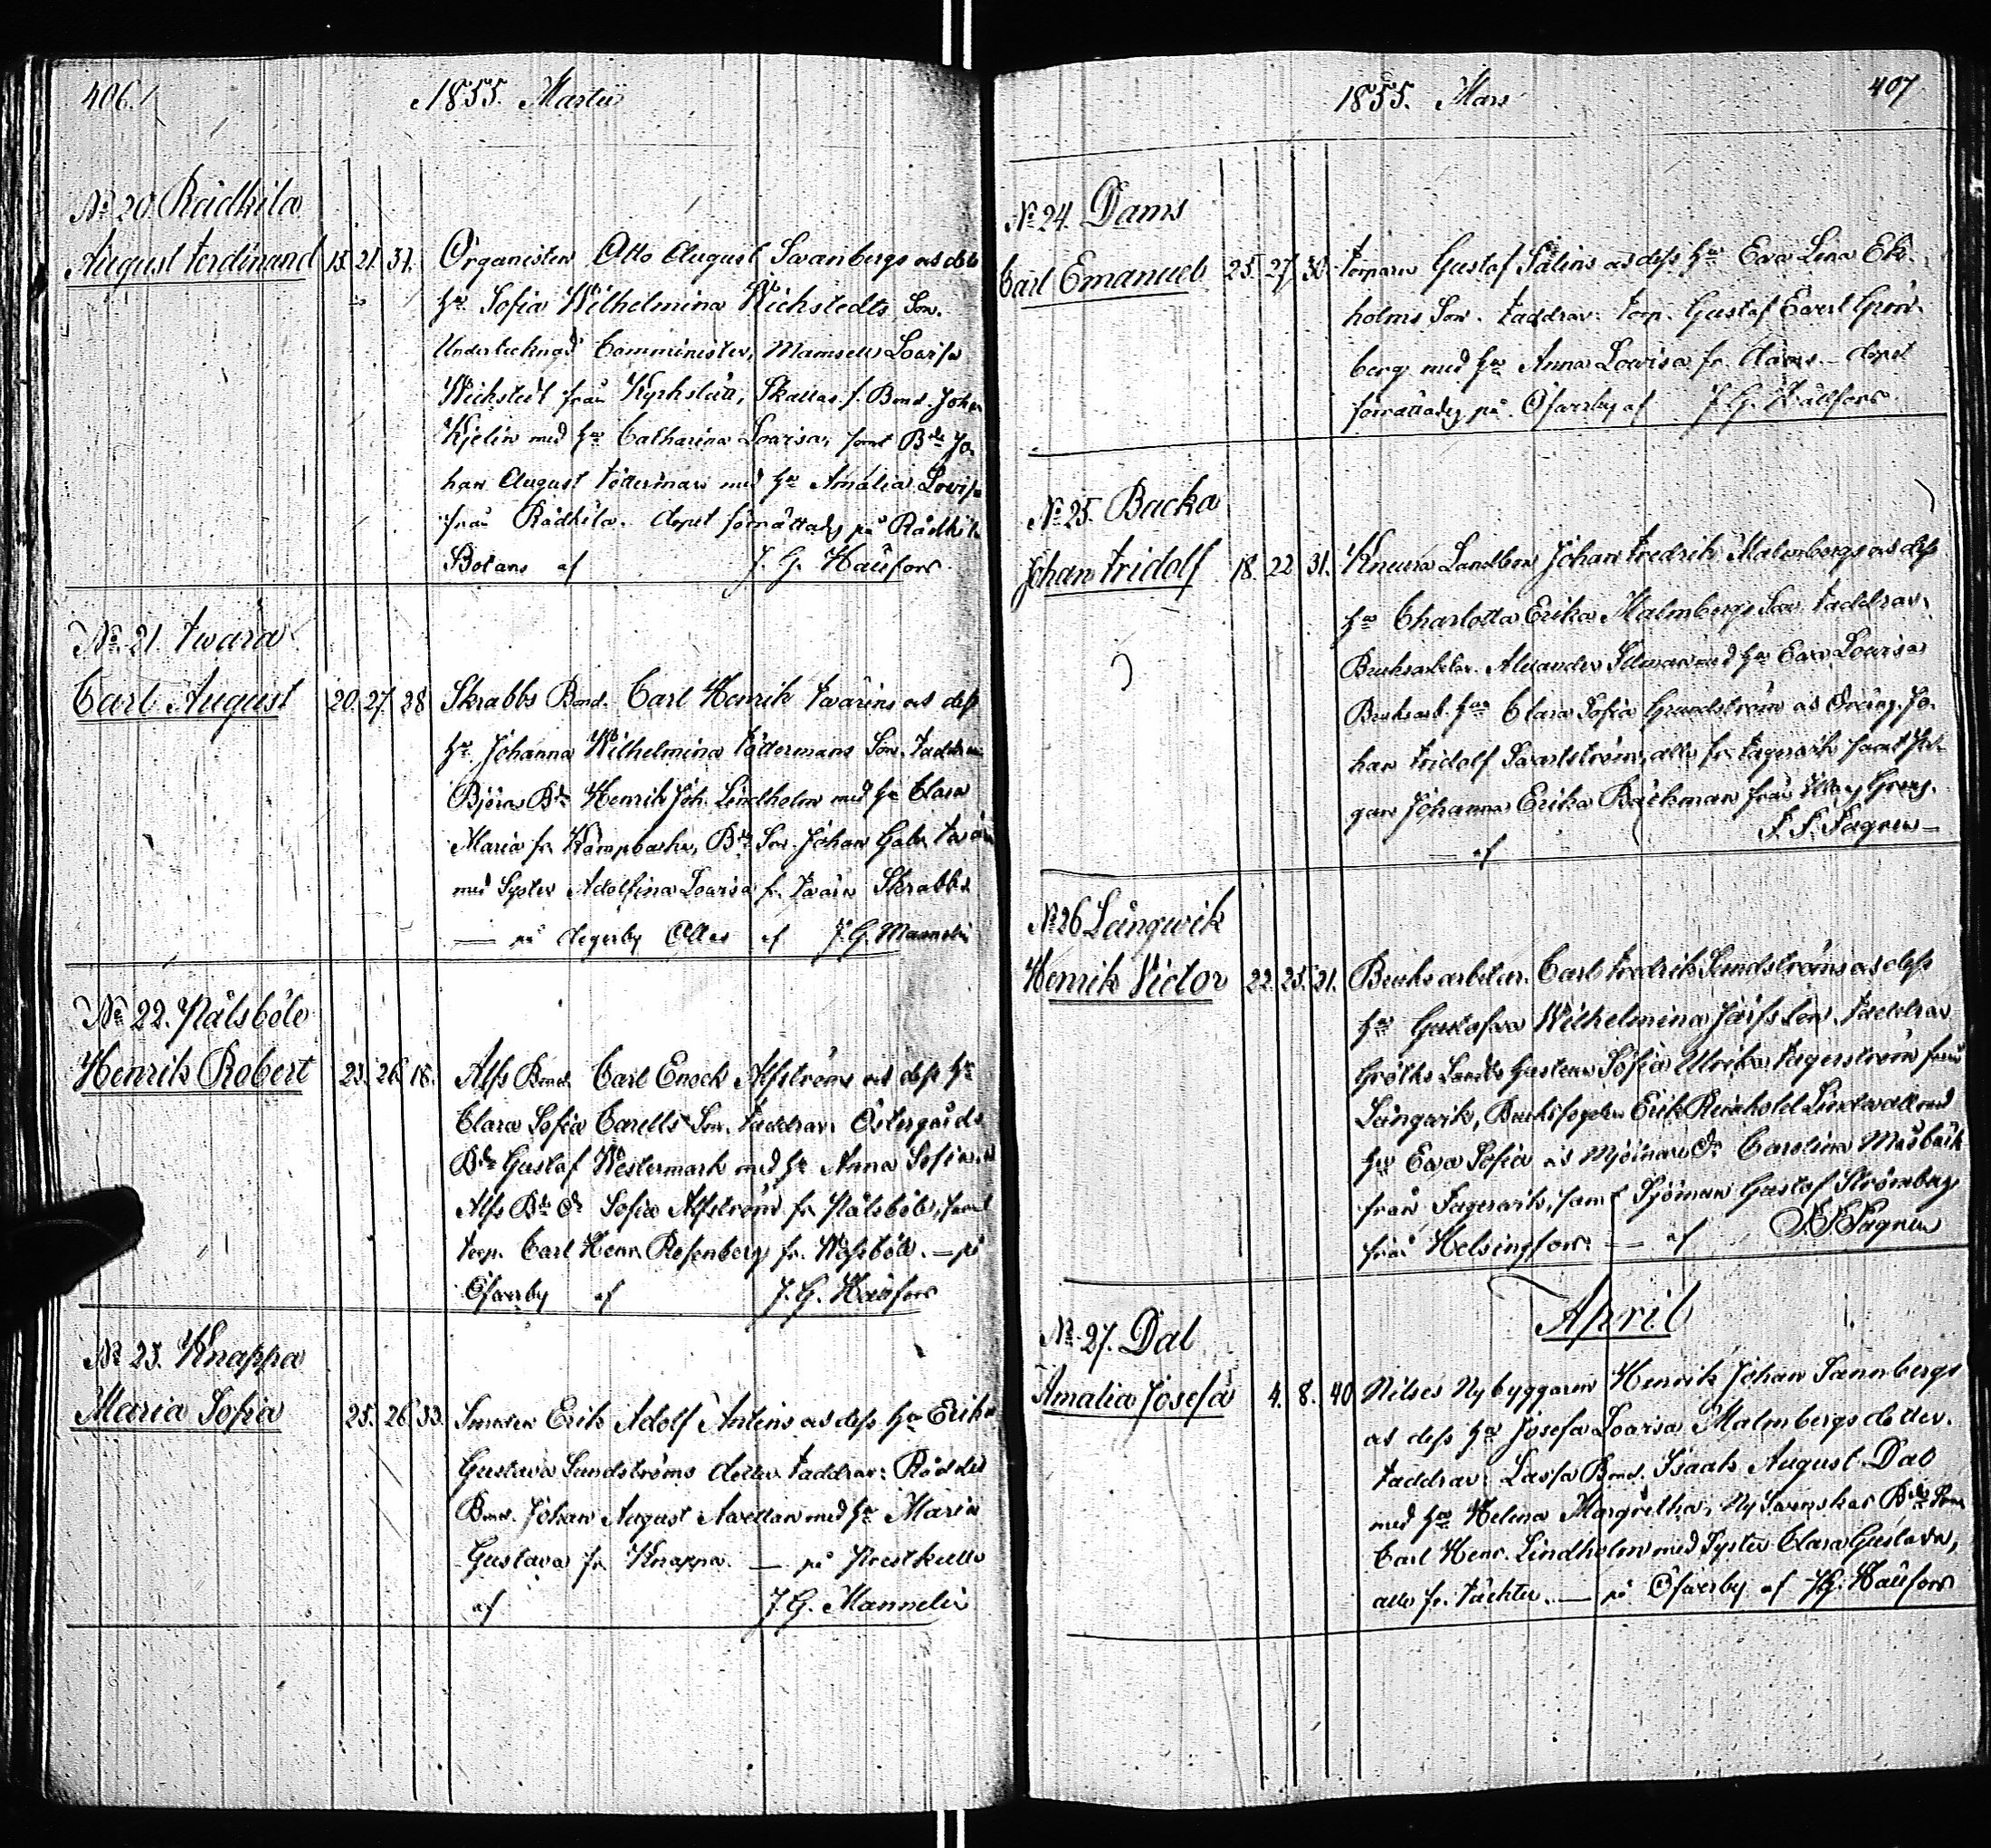 406.
1855. Martii
No 20. Rådkila
August Ferdinand 13. 21. 37. Organisten Otto August Swanbergs och dess
Hu Sofia Wilhelmina Wichstedts Son.
Undertecknad Comminister, Mamsell Lovisa
Wichstedt från Kyrkslätt, Skallas f. Bond. Johan
Kjelin med Hu Catharina Lovisa, samt Bde Jo-
han August Tötterman med Hu Amalia Lovisa
från Rådkila. Dopet förrättades på Rådkila
Botans af J. G. Hällfors
No 21. Twära
Carl August 20. 27. 28 Skrabbs Bond. Carl Henrik Twärins och dess
Hu Johanna Wilhelmina Töttermans Son. Faddrar
Björns Bde Henrik Joh. Lindholm med Hu Clara
Maria fr. Kämpbacka, Bde Son Johan Gabr.
med Syster Adolfina Lovisa fr. Twära Skrabbs
— på Degerby Ollas af J. G. Mannelin
No 22. Pålsböle
Henrik Robert 23. 26. 18. Alfs Bond. Carl Enock Alfströms och dess Hu
Clara Sofia Carells Son. Faddrar: Östergårds
Bde Gustaf Westermark med Hu Anna Sofia,
Alfs Bde Dr Sofia Alfström fr. Pålsböle, samt
torp. Carl Henr. Rosenberg fr. — på
Ofverby af J. G. Hällfors
No 23. Knappa
Maria Sofia 25. 26. 33. Smeden Erik Adolf Antins och dess Hu Erika
Gustava Sundströms dotter. Faddrar:
Bond. Johan August Avellan med Hu Maria
Gustava fr. Knappa. — på Prestkulla
af J. G. Mannelin
1855. Mars
407
No 24. Dams
Carl Emanuel 25. 27. 30. torparen Gustaf Sälins och dess Hu Eva Lena Ek-
holms Son. Faddrar: torp. Gustaf Evert Grön-
berg med Hu Anna Lovisa fr. Dams. — dopet
förrättades på Ofverby af J. G. Hällfors
No 25. Backa
Johan Fridolf 18. 22. 31. Landbon Johan Fredrik Malmbergs och dess
Hu Charlotta Erika Malmbergs Son. Faddrar:
Bruksarbetar. Alexander Selman med Hu Eva Lovisa
Bruksarb. Hu Clara Sofia Grundström och Dräng. Jo-
han Fridolf Swartström, alla fr. Fagervik samt Pi-
gan Johanna Erika Bäckman från
— af F. F. Fagren —
No 26 Långwik
Henrik Victor 22. 25. 21. Bruks arbetar. Carl Fredrik Sundströms och dess
Hu Gustafva Wilhelmina Son. Faddrar
Sofia Ulrika Fagerström från
Långwik, Bruksfogden Erik Reinhold Lindwall med
Hu Eva Sofia och Mjölnare Dr Carolina
från Fagervik, samt Sjöman Gustaf Strömberg
från Helsingfors — af F. F. Fagren
April
No 27. Dal
Amalia Josefa 4. 8. 40 Nilses Nybyggaren Henrik Johan Sannbergs
och dess Hu Josefa Lovisa Malmbergs dotter.
Faddrar: Lassa Bond. Isaak August Dal
med Hu Helena Margretha, Ny Svenskas Bde Son
Carl Henr. Lindholm med Syster Clara Gustava,
alla fr. Täckter. — på Ofverby af J. G. Hällfors